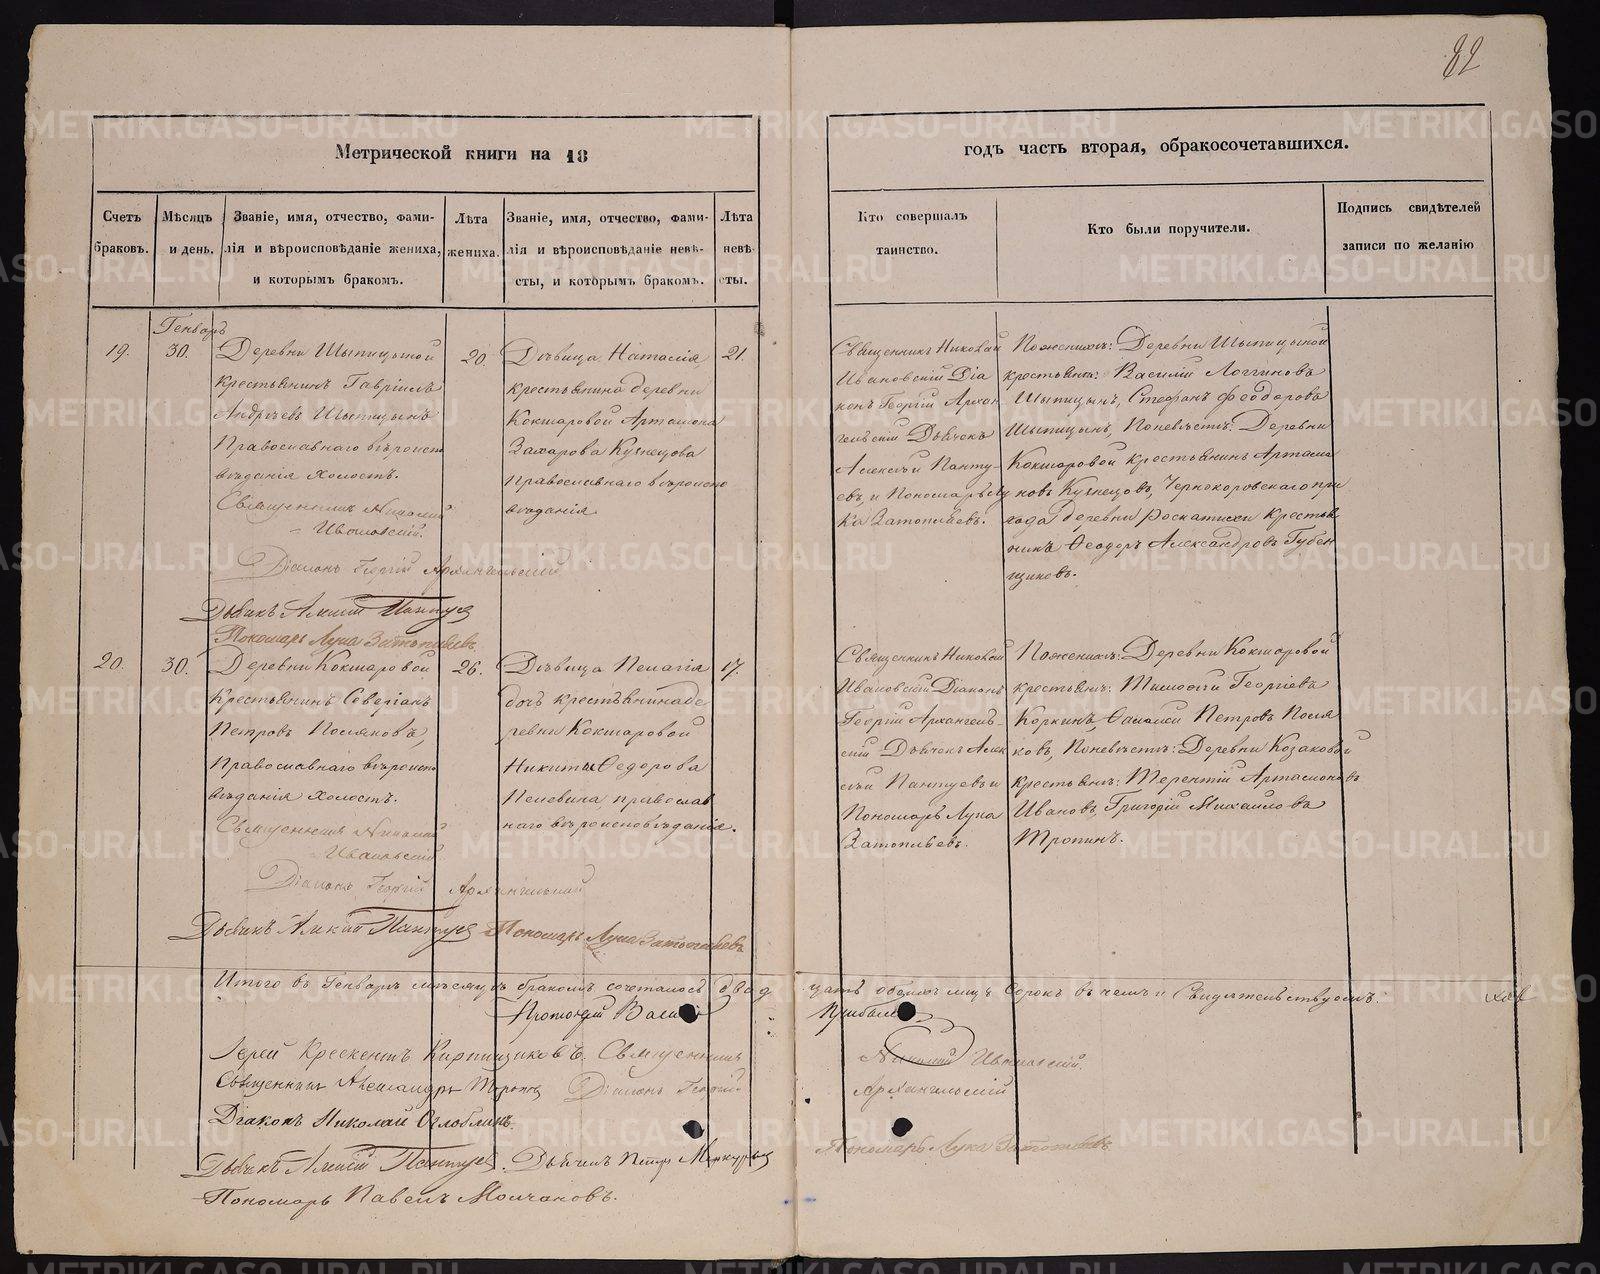 82
Метрической книги на 18
годъ часть вторая, обракосочетавшихся.
Счетъ браковъ.
Мѣсяцъ и день.
Званіе, имя, отчество, фами-
лія и вѣроисповѣданіе жениха,
и которымъ бракомъ.
Лѣта
жениха.
Званіе, имя, отчество, фами-
лія и вѣроисповѣданіе невѣ-
сты, и которымъ бракомъ.
Лѣта
невѣ-
сты.
Кто совершалъ
таинство.
Кто были поручители.
Подпись свидѣтелей
записи по желанію
Генварь
19.
30.
Деревни Шыпицыной
крестьянинъ Гавріилъ
Андреевъ Шыпицынъ
Православнаго вѣроиспо
вѣданія холостъ.
Священникъ Николай
Ивановскій.
Діаконъ Георгій Архангельскій
Дьячекъ Алексій Пантуев
Пономарь Лука Затопляевъ
20.
Дѣвица Наталія,
крестьянина деревни
Кокшаровой Артамона
Захарова Кузнецова
православнаго вѣроиспо
вѣданія
21.
Священникъ Николай
Ивановскій Діа
конъ Георгій Архан-
гельскій Дьячекъ
Алексѣй Панту-
евъ, и Пономарь Лу
ка Затопляевъ.
По женихѣ: Деревни Шыпицыной
крестьяне: Василій Логгиновъ
Шыпицынъ, Стефанъ Феодоровъ
Шыпицынъ, По невѣстѣ: Деревни
Кокшаровой крестьянинъ Артамо
новъ Кузнецовъ, Чернокоровскаго при
хода деревни Роскатихи крестья
нинъ Ѳеодоръ Александровъ Губен
щиковъ.
20.
30.
Деревни Кокшаровой
Крестьянинъ Северіанъ
Петровъ Посляковъ,
Православнаго вѣроиспо
вѣданія холостъ.
Священникъ Николай
Ивановскій
Діаконъ Георгій Архангельскій
Дьячекъ Алексій Пантуев Пономарь Лука Затопляевъ
26.
Дѣвица Пелагія
дочь крестьянина де
ревни Кокшаровой
Никиты Ѳедорова
Пелевина православ
наго вѣроисповѣданія.
17.
Священникъ Николай
Ивановскій Діаконъ
Георгій Архангель-
скій Дьячекъ Алек
сѣй Пантуевъ и
Пономарь Лука
Затопляевъ.
По женихѣ: Деревни Кокшаровой
крестьяне: Тимоѳей Георгіевъ
Коркинъ, Петровъ Посля
ковъ, По невѣстѣ: Деревни Козаковой
крестьяне: Терентій Артамоновъ
Ивановъ, Григорій Михайловъ
Тропинъ.
Итого въ Генварѣ мѣсяцѣ бракомъ сочеталось двад
цать обоихъ лицъ сорокъ въ чемъ и Свидѣтельствуемъ:
Протоіерей
Іерей Крескентъ Кирпищиковъ. Священникъ
Николай Ивановскій.
Священникъ Александръ Діаконъ Георгій
Архангельскій
Діаконъ Николай Оглоблинъ.
Дьячекъ Алексій Пантуев. Дьячекъ Петръ Меркурьев
Пономарь Лука Затопляевъ
Пономарь Павелъ Молчановъ.
METRIKI.GASO-URAL.RU